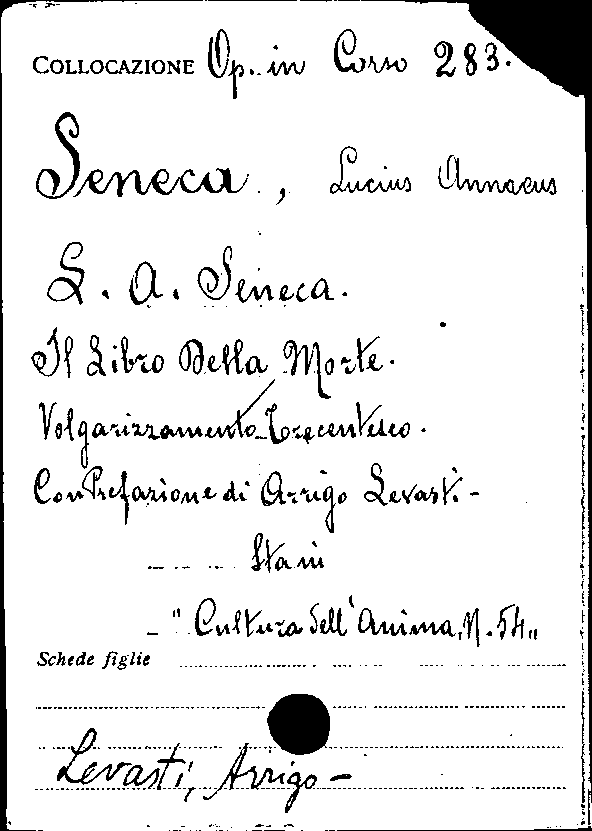 COLLOCAZIONE Op. in Corso 283.
Seneca, Lucius Annaeus
L. A. Seneca.
Il Libro Della Morte.
Volgarizzamento Trecentesco.
Con Prefazione di Arrigo Levasti -
- "Cultura dell'Anima, N. 54"
Schede figlie
Levasti, Arrigo -